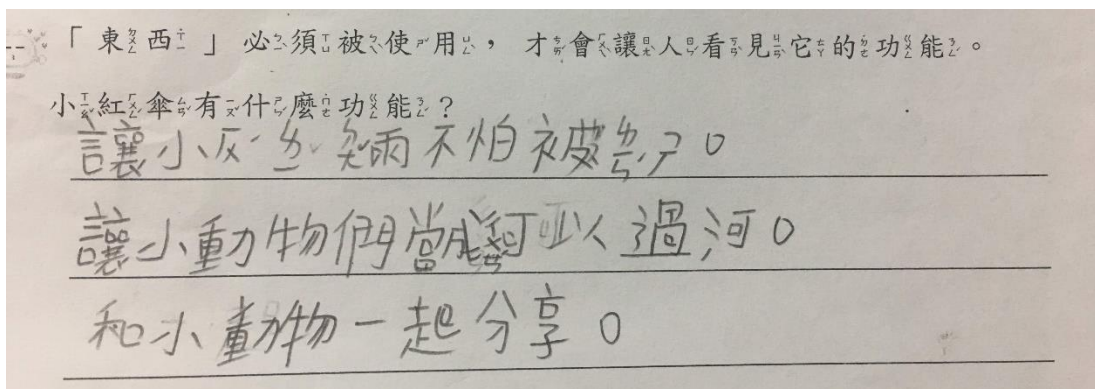 「東西」必須被使用，才會讓人看見它的功能。
小紅傘有什麼功能？
讓小ㄆㄥˊㄧㄡˇ雨不怕被ㄌㄧㄣˊ
讓小動物們當船可以過河。
和小動物一起分享。